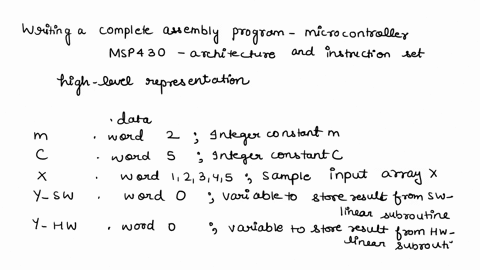 Writing a complete assembly program - microcontroller
MSP430 - architecture and instruction set
high-level representation
.data
m .word 2 ; Integer constant m
C .word 5 ; Integer constant C
X .word 1,2,3,4,5 ; Sample input array X
Y-SW . word 0 ; variable to store result from SW-
linear subroutine
Y-HW . word 0 ; variable to store result from HW-
linear subrouti